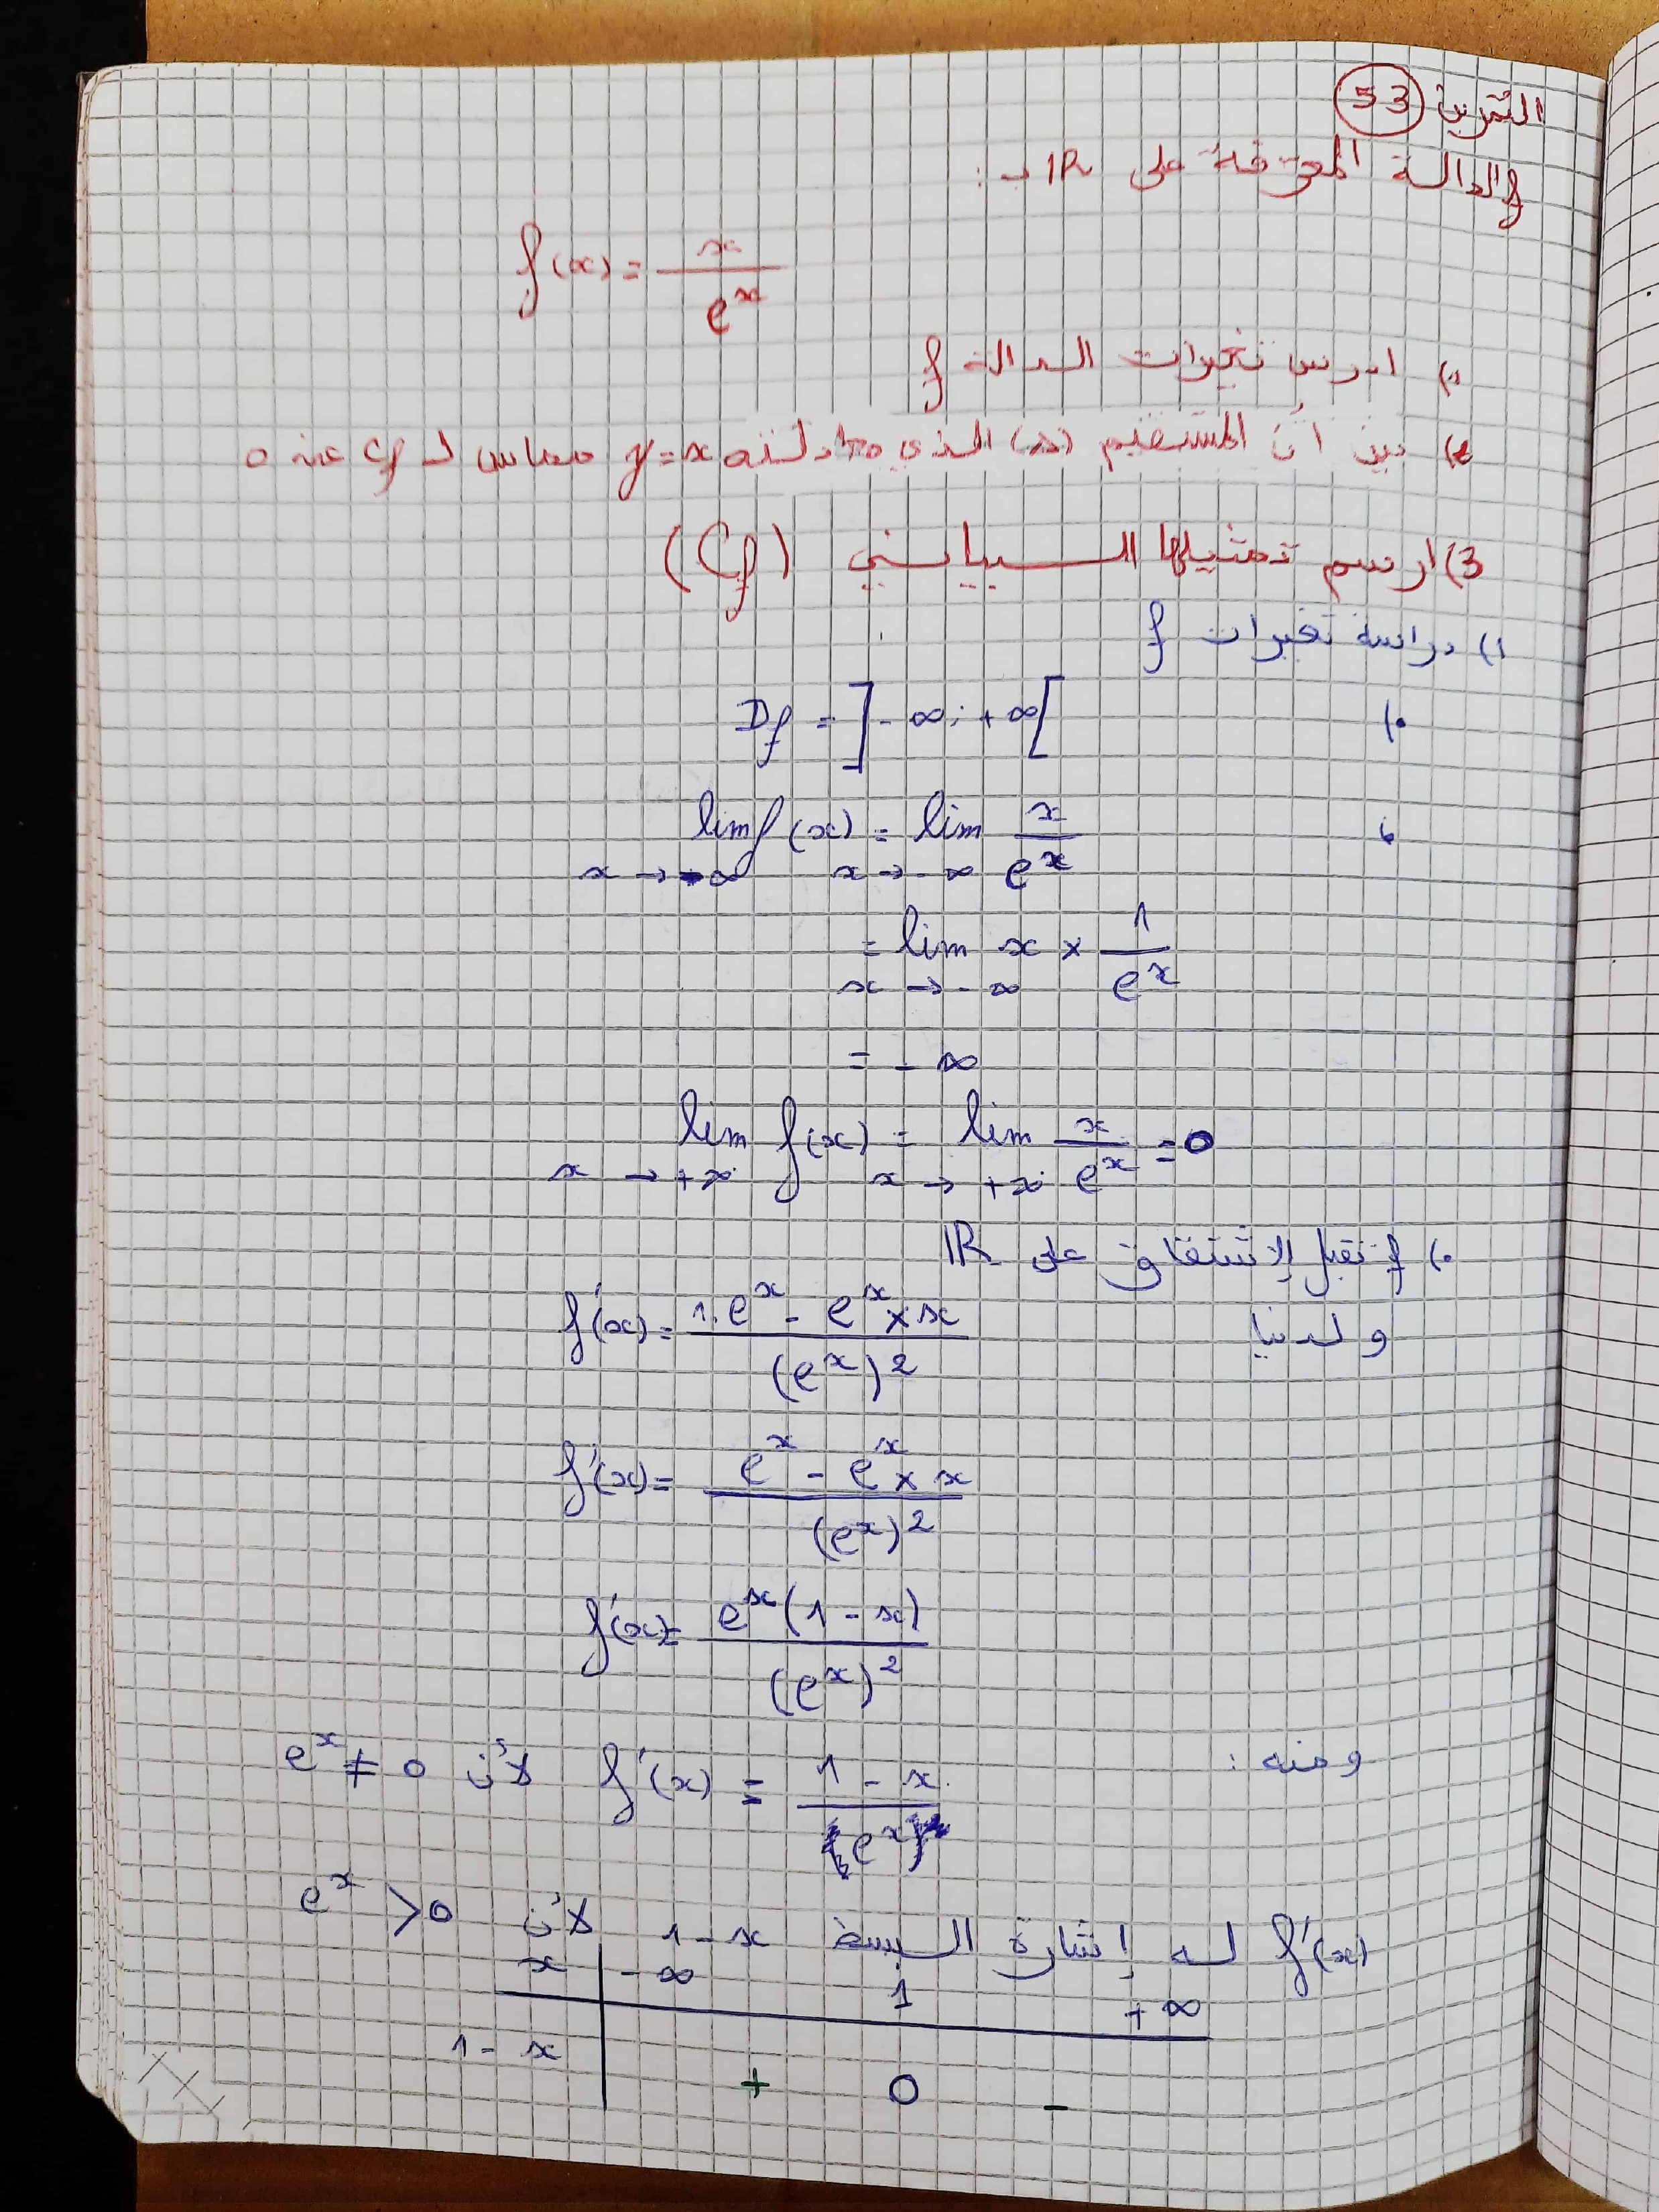 التمرين 53
f الدالة المعرفة على IR بـ :
f(x) = x / e^x
1) ادرس تغيرات الدالة f
2) بين أن المستقيم (Δ) الذي معادلته y = x مماس لـ Cf عند 0
3) ارسم تمثيلها البياني (Cf)
1) دراسة تغيرات f
•) Df = ]-∞; +∞[
lim f(x) = lim x / e^x
x → -∞ x → -∞
= lim x × 1 / e^x
x → -∞
= -∞
lim f(x) = lim x / e^x = 0
x → +∞ x → +∞
•) f تقبل الإشتقاق على IR
ولدينا f'(x) = (1.e^x - e^x × x) / (e^x)^2
f'(x) = (e^x - e^x × x) / (e^x)^2
f'(x) = e^x(1 - x) / (e^x)^2
ومنه : f'(x) = (1 - x) / e^x لأن e^x ≠ 0
f'(x) له إشارة البسط 1 - x لأن e^x > 0
x -∞ 1 +∞
1 - x + 0 -